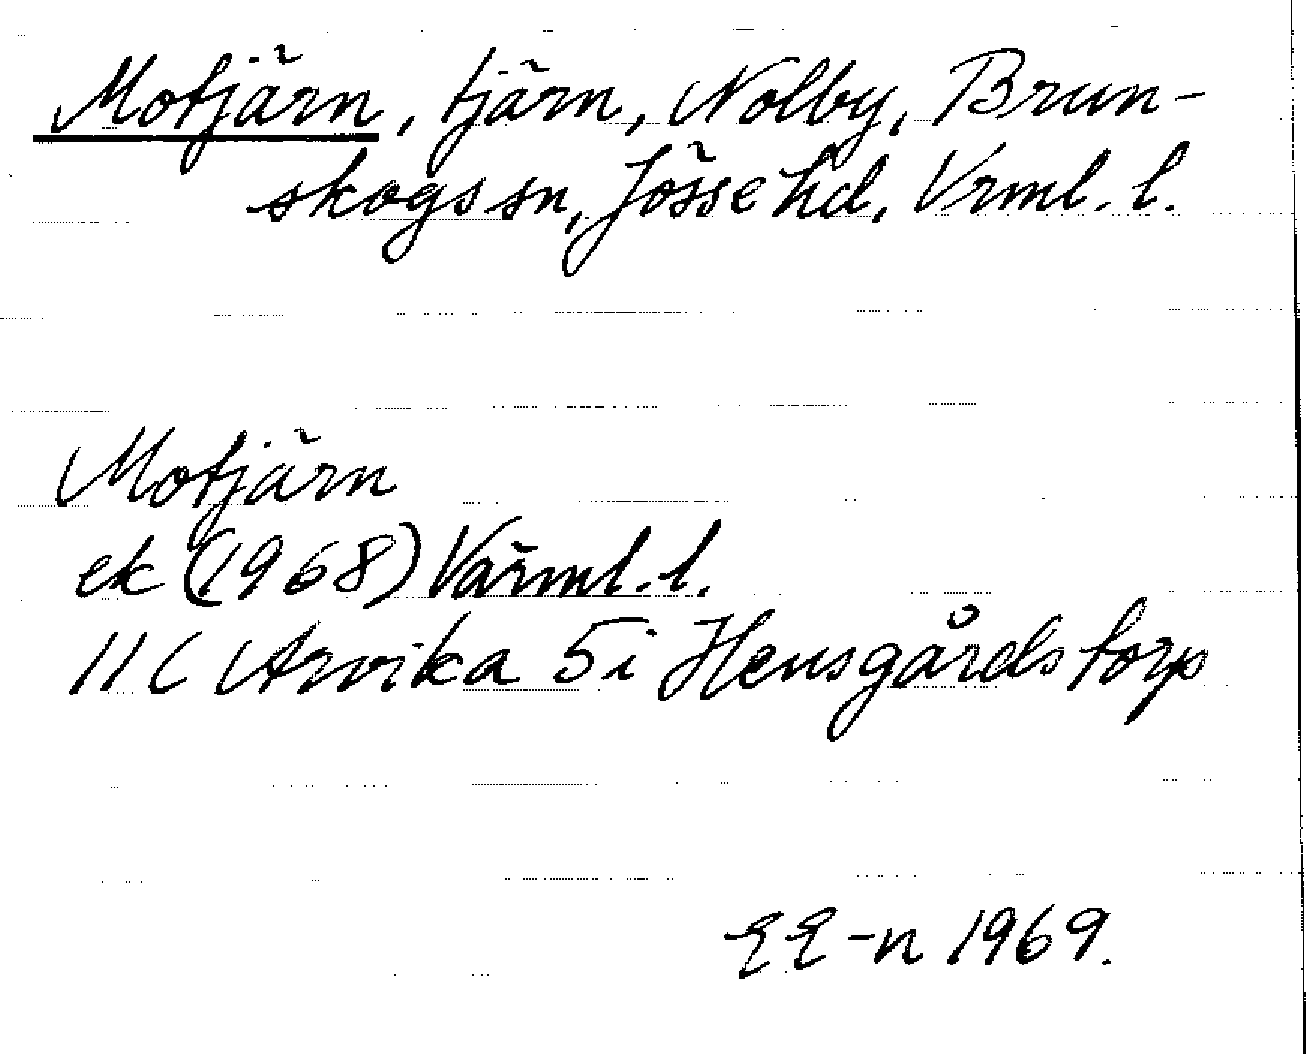 Motjärn, tjärn, Nolby, Brun-
skogs sn, Jösse hd, Vrml. l.
Motjärn
ek (1968) Värml. l.
11C Arvika 5i Hensgårdstorp
EE-n 1969.